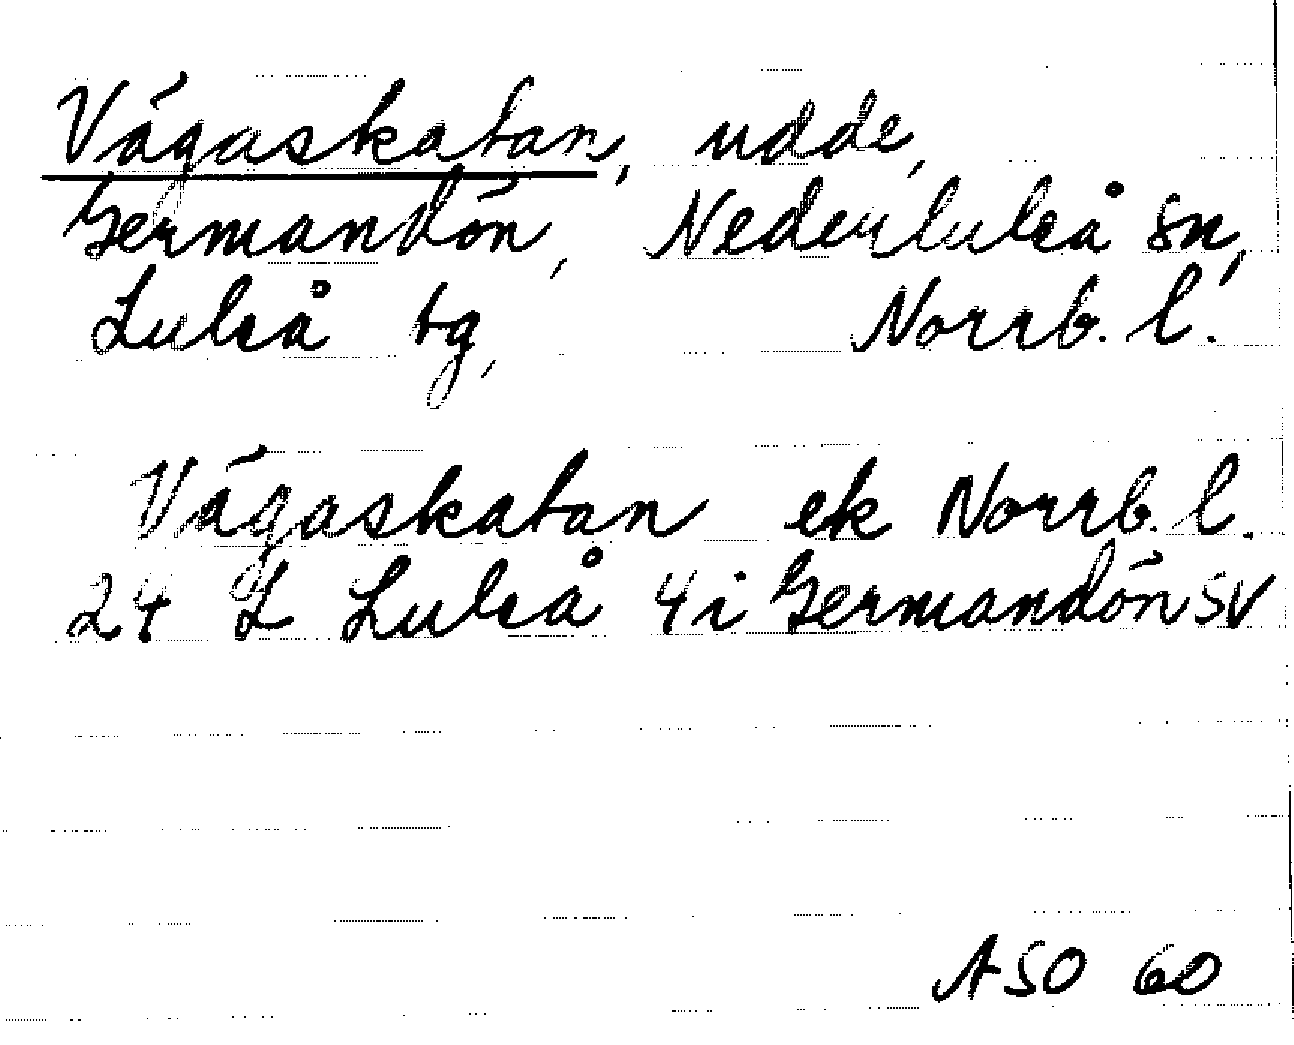 Vägaskatan, udde,
Germandön, Nederluleå sn,
Luleå tg, Norrb. l.
Vägaskatan ek Norrb. l.
24 L Luleå 4i Germandön SV
ASO 60